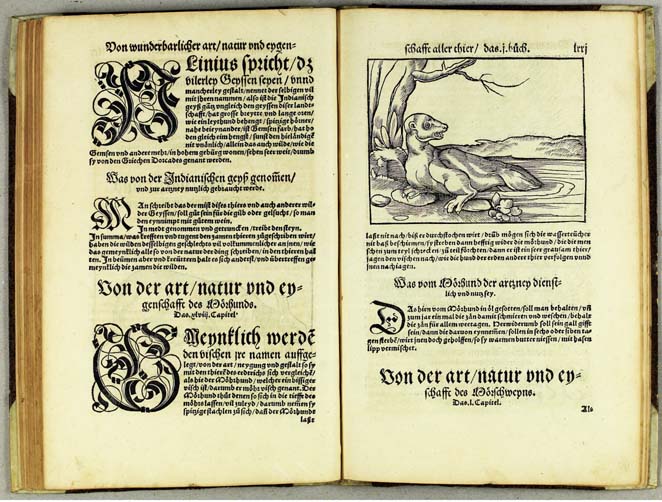 Von wunderbarlicher art/ natur vnd eygen-
PLinius spricht/ dz
vilerley Geyssen seyen/ vnnd
mancherley gestalt/ nennet der selbigen vil
mit jhren nammen/ also ist die Indianisch
geyß gantz vngleich den geyssen diser land-
schafft/ hat grosse breytte vnd lange oren/
wie ein leythund behengt/ spitzige hörner/
nahe bey einander/ ist Gemsen farb/ hat ho
den gleich eim hengst/ sunst den hieländische
nit vnönlich/ allein das auch wilde/ wie die
Gemsen vnd andere meht/ in hohem gebürg wonen/ sehen seer weit/ drumb
sy von den Griechen Dorcades genant werden.
Was von der Indianischen geyß genommen/
vnd zur artzney nutzlich gebraucht werde.
MAn schreibt das der mist dises thiers vnd auch anderer wil-
der Geyssen/ soll gůt sein für die gilb oder gelsucht/ so man
den eynnimpt mit gůtem wein.
In mede genommen vnd getruncken/ treibt den steyn.
In summa/ was
haben die wilden desselbigen geschlechts vil volkummenlicher an jnen/ wie
das gemeynklich alle so von der natur der ding schreiben/ in den thieren hal
ten. In beümen aber vnd kreüttern halt es sich anderst/ vnd übertreffen ge
meynklich die zamen die wilden.
Von der art/ natur vnd ey-
genschafft des Mörhunds.
Das. xlviij. Capitel.
GMeynklich werdē
den vischen jre namen auffge-
legt/ von der art/ neygung vnd gestalt so sy
mit den thierē des erdtrichs sich vergleichē/
als hie der Mörhund/ welcher ein bissiger
visch ist/ darumb er möhr visch genant. Des
Mörhund thůt denen so sich in die tieffe des
möhrs lassen/ vil zuleyd/ darumb nemen sy
spitzige stachlen zů sich/ daß der Mörhunds
laßt
schafft aller thier/ das .j. bůch. lxxj
laßt nit nach/ biß er durchstochen wirt/ drüb mögen sich die wassertücher
nit baß beschiemen/ sy sterben dann hefftig wider die mörhund/ die die men
schen zum teyl schrecken/ zů teil förchten/ dann er ist ein seer grausam thier/
jagen den vischen nach/ wie die hund der erden andere thier verfolgen vnnd
jnen nachjagen.
Was vom Mörhund der artzney dienst-
lich vnd nutz sey.
DAs hirn vom Mörhund in öl gesotten/ soll man behalten/ vñ
zum jar ein mal die zän damit schmieren vnd weschen/ behalt
die zän für allem weetagen. Herwiderumb soll sein gall gifft
sein/ dann die daruon eynnemen/ sollen in sechs oder siben ta
gen sterbē/ wirt jnen doch geholffen/ so sy warmen butter niessen/ mit hasen
lipp vermischet.
Von der art/ natur vnd ey-
schafft des Mörschweyns.
Das. l. Capitel.
Als